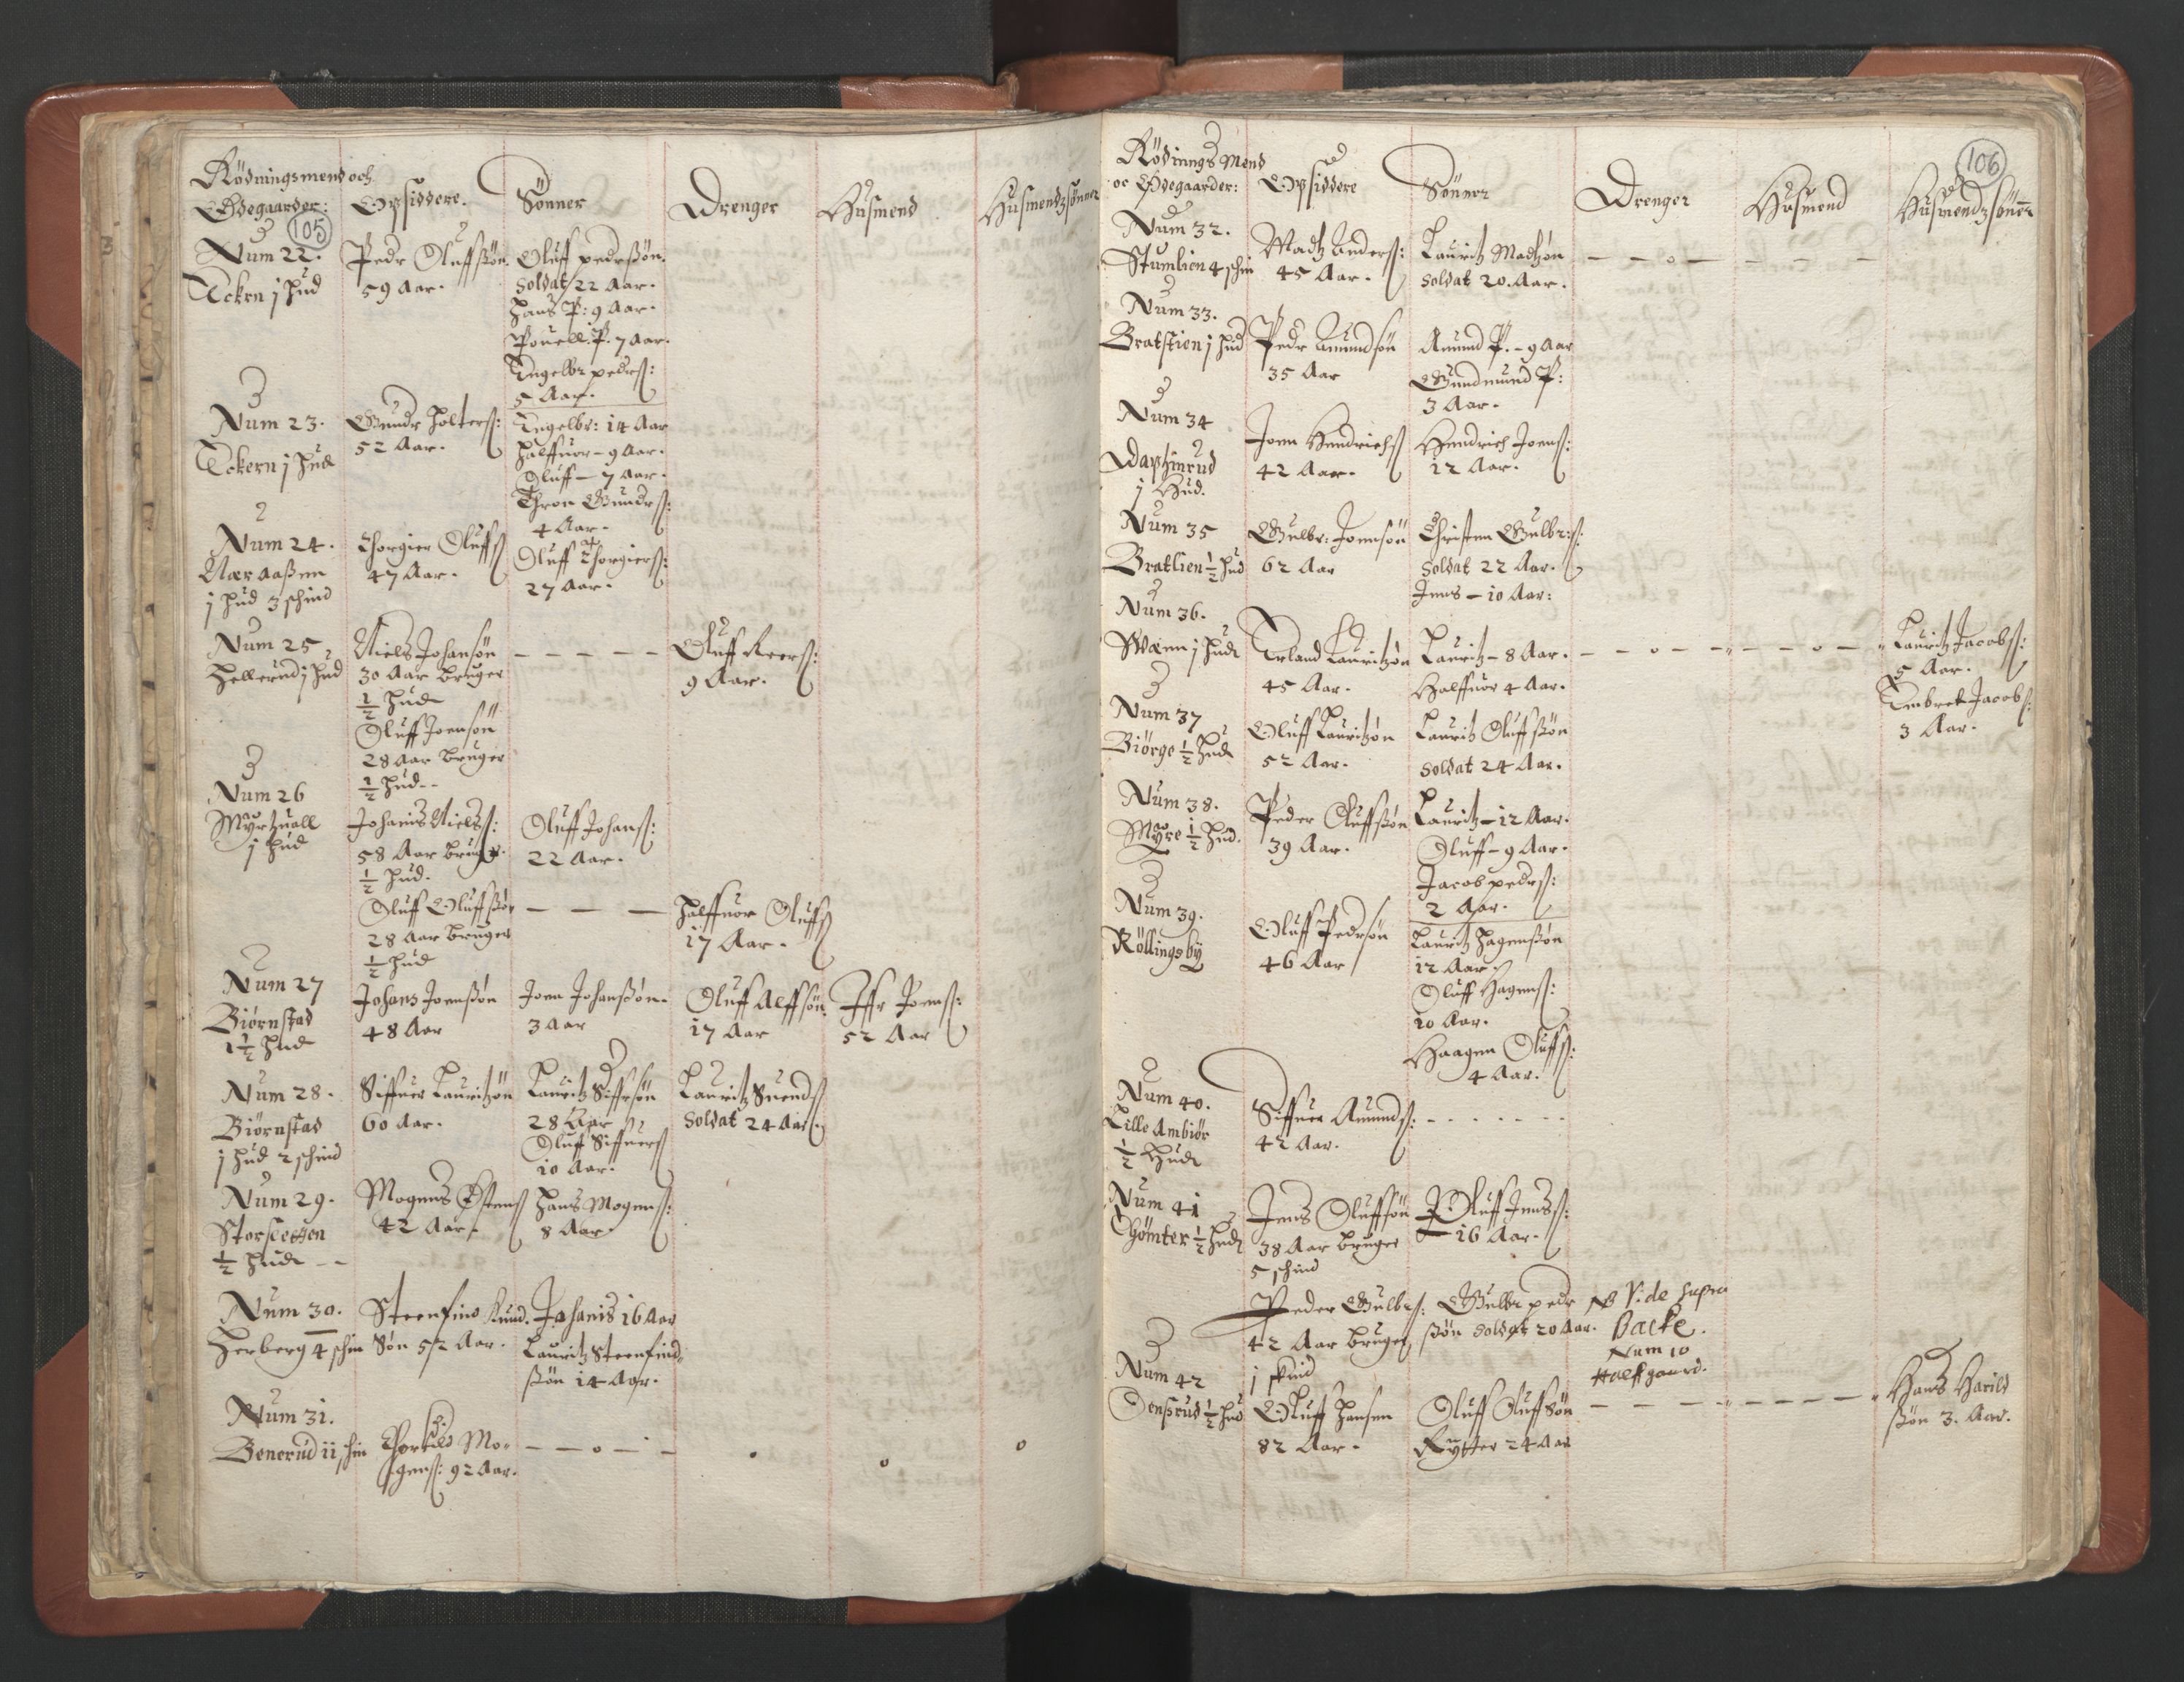 Rödningsmend och
Ödegaarder:
Opsiddere.
Sönner
Drenger
Husmend
Husmendz sönner
105
Num 22.
Eckern j hud
Pedr Oluffsön.
59 Aar.
Oluff pedersön.
Soldat 22 Aar.
Hans P: 9 Aar.
Pouell: P. 7 Aar.
Engelbr pedrs:
5 Aar.
Num 23.
Eckern j hud
Gundr Holters:
52 Aar.
Engelbr: 14 Aar
Halffuor - 9 Aar.
Oluff - 7 Aar.
Thron Gundrs:
4 Aar.
Num 24.
Nær aaßen
j hud 3 schind
Thorgier Oluffs
47 Aar.
Oluff Thorgiers:
27 Aar.
Num 25
Hellerud j hud
Niels Johansön
30 Aar bruger
½ hud
Oluff Joensön
28 Aar bruger
½ hud --
- - - - -
Oluff Reers:
9 Aar.
Num 26
Myrhuall
j hud
Johanis Nielss:
58 Aar bruger
½ hud.
Oluff Johans:
22 Aar.
Oluff Oluffsön
28 Aar bruger
½ hud
- - -
Halffuor Oluffs
17 Aar.
Num 27
Biørnstad
1½ hud
Johans Joenssøn
48 Aar
Joen Johanssøn.
3 Aar
Oluff Alffsøn.
17 Aar
Iffr Joens:
52 Aar
Num 28.
Biørnstad
j hud 2 schind
Siffuer Lauritzön
60 Aar.
Lauritz Siffrsön
28 Aar
Oluff Siffuers
10 Aar.
Lauritz Suends
Soldat 24 Aar
Num 29.
½ hud --
Mogens Østens
42 Aar.
Hans Mogens:
8 Aar
Num 30.
Herberg 4 schin
Steenfind Aund.
Søn 52 Aar.
Johanis 16 Aar
Lauritz Steenfind
ssøn 14 Aar.
Num 31.
Benerud 11 schin
Thorkild Mo-
gens: 92 Aar.
- - o - -
Rödnings Mend
oc Ödegaarder:
Opsiddere
Sönner
Drenger
Husmend
Husmendz sönner
106
Num 32.
Stumlien 4 schin
Madtz Anders:
45 Aar.
Lauritz Madtzøn
Soldat 20. Aar.
- - o - - - -
Num 33.
Bratstien j hud
Pedr Amundsön
35 Aar
Amund P. - 9 Aar
Gundmund P:
3 Aar.
Num 34
j Hud.
Joen Hendrichs
42 Aar.
Hendrich Joens:
12 Aar.
Num 35
Bratlien ½ hud
Gulbr: Joensön
62 Aar
Christen Gulbr:s:
Soldat 22 Aar.
Jens - 10 Aar:
Num 36.
Moenn j hud
Erland Lauritzøn
45 Aar.
Lauritz - 8 Aar.
Halffuor 4 Aar.
- - o - - - - o -
Lauritz Jacobs:
5 Aar.
Embret Jacobs:
3 Aar.
Num 37
Biörge ½ hud
Oluff Lauritzøn
52 Aar.
Lauritz Oluffssøn
Soldat 24 Aar.
Num 38.
Myre ½ hud.
Peder Oluffssøn
39 Aar.
Lauritz - 12 Aar.
Oluff - 9 Aar.
Jacob pedrs:
2 Aar.
Num 39.
Röllingsby
Oluff Pedrsøn
46 Aar
Lauritz Hagenssøn
12 Aar.
Oluff Hagens:
10 Aar.
Haagen Oluffs:
4 Aar.
Num 40.
Lille Ambiör
½ Hud
Siffuer Amunds:
42 Aar.
- - - - - -
Num 41
Thömter ½ hud
Jens Oluffsøn
38 Aar bruger
5 schind
Oluff Jenss:
- 16 Aar.
Peder Gulbrs:
42 Aar bruger
j skind
Gulbr pedr
ssøn soldat 20 Aar.
NB Vide supra
Backe.
Num 10
Halffgaard.
Num 42
Densrud ½ hud
Oluff Hansen
82 Aar.
Oluff Oluffsøn
Rytter 24 Aar
- - - - - - -
Hans Harild
ssøn 3. Aar.